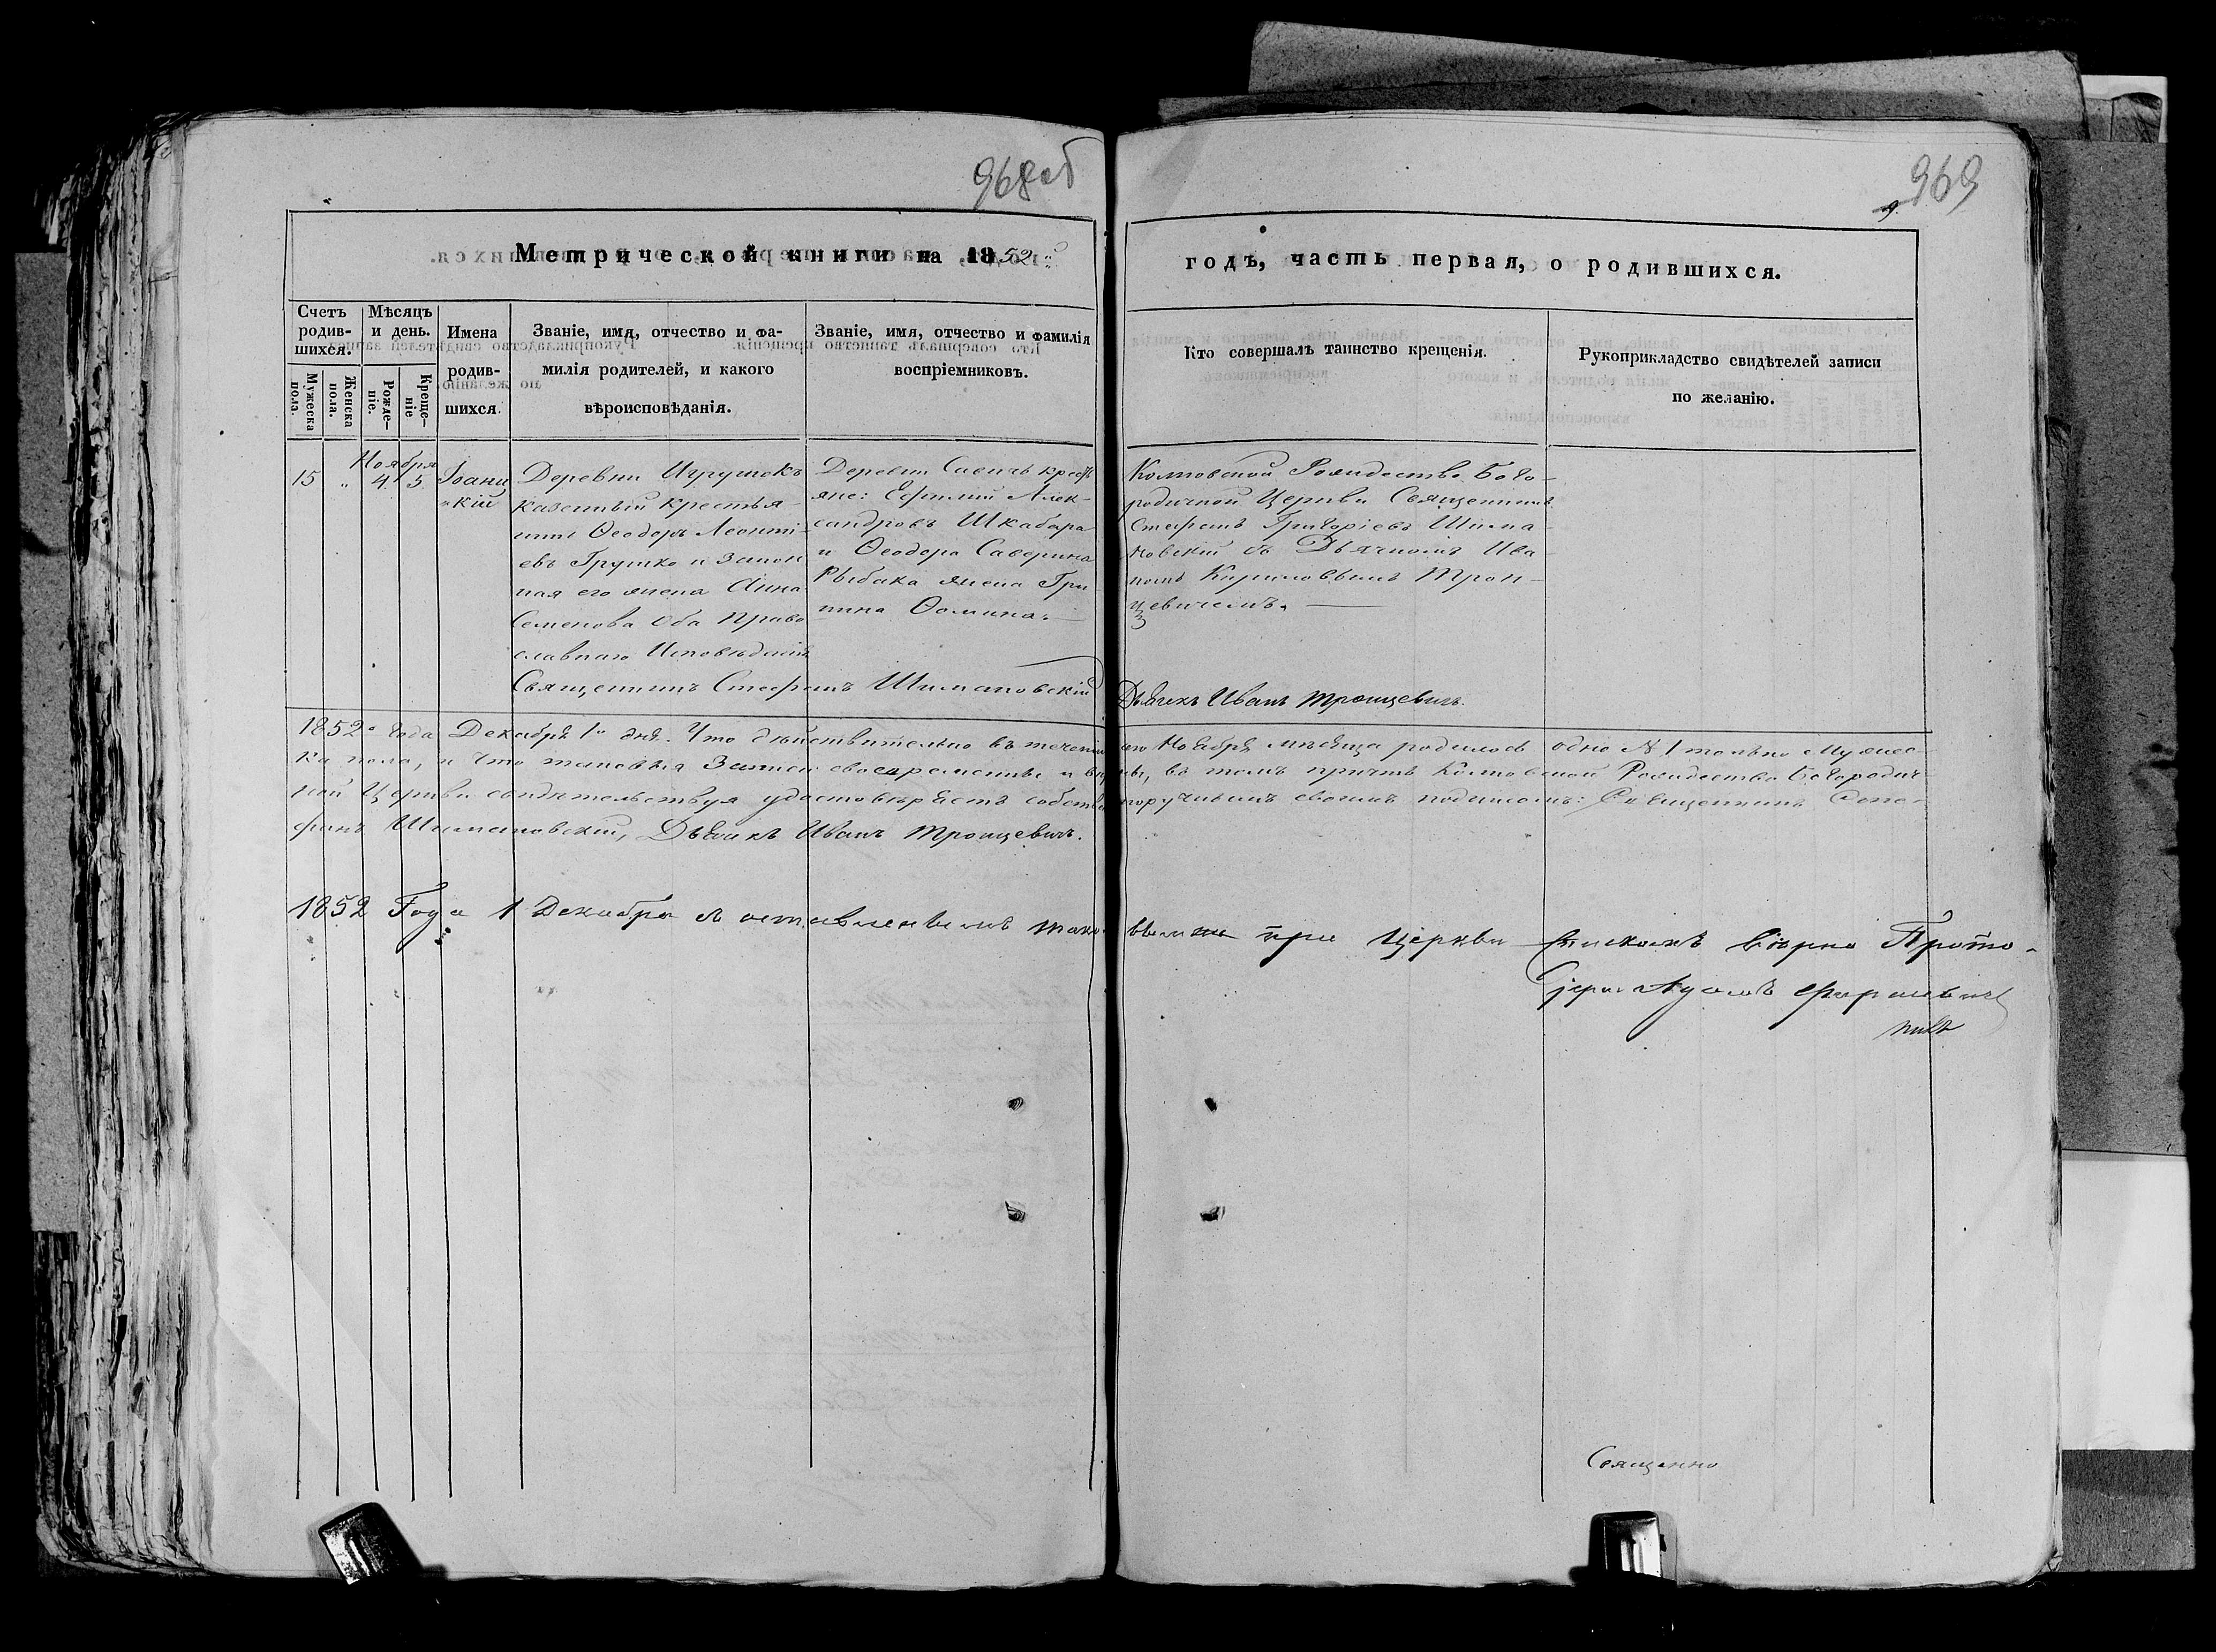 968об
969
9.
Метрической книги на 1852
годъ, часть первая, о родившихся.
Счетъ родив-шихся.
Мужеска пола.
Женска пола.
Мѣсяцъ и день.
Рожде-ніе.
Креще-ніе
Имена родив-шихся.
Званіе, имя, отчество и фа-
милія родителей, и какого
вѣроисповѣданія.
Званіе, имя, отчество и фамилія
воспріемниковъ.
Кто совершалъ таинство крещенія.
Рукоприкладство свидѣтелей записи
по желанію.
15
"
Ноября
4.
5.
Іоанн
кій
Деревни Игрушекъ
казенный крестья-
нинъ Ѳеодоръ Леонті-
евъ Грушко и закон
ная его жена Анна
Семенова оба право
славнаго Исповѣданія
Деревни Савичъ кресть
яне: Ефимій Алек-
сандровъ Шкабара
и Ѳеодора Саверина
Рыбака жена Гри
пина Ѳомина.
Колтовской Рождество Бого-
родичной Церкви Священникъ
Стефанъ Григоріевъ Шима-
новскій съ Дьячкомъ Ива-
номъ Кириловымъ Трон-
цевичемъ.
Священникъ Стефанъ Шимановскій
Дьячекъ Иванъ Тронцевичъ.
1852 года Декабря 1 дня. Что дѣйствительно въ теченіи Ноября мѣсяца родилось одно № 1 только Мужес-
ка пола, и что таковыя записи своевременны и въ томъ причтъ Колтовской Рождество Богородич
ной Церкви свидѣтельствуя удостовѣряетъ собственноручнымъ своимъ подписомъ: Священникъ Сте-
фанъ Шимановскій, Дьячекъ Иванъ Тронцевичъ.
1852 Года 1 Декабря съ оставленнымъ при Церкви спискомъ вѣрно Прото-
іерей Адамъ
Священно